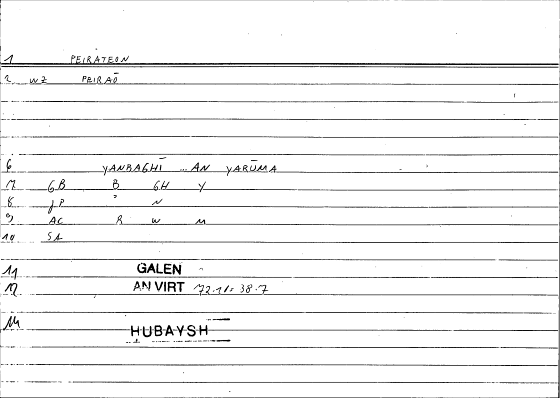 1 PEIRATEON
2 WZ PEIRAŌ
6 YANBAGHĪ ... AN YARŪMA
7 GB B GH Y
8 JP N
9 AC R W M
10 SA
11 GALEN
12 AN VIRT 72.11 = 38.7
14 HUBAYSH